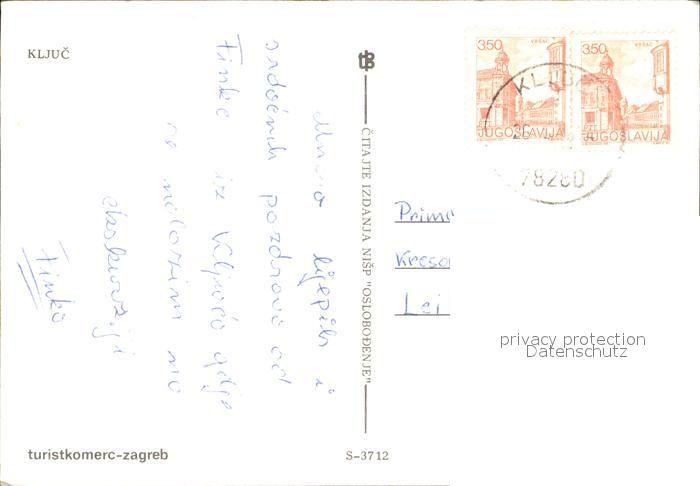 KLJUČ
Mnogo lijepih i
srdačnih pozdrava od
Finke iz Ključa gdje
se nalazim na
ekskurziji
Finka
turistkomerc-zagreb
ČITAJTE IZDANJA NIŠP "OSLOBOĐENJE"
S-3712
3,50 VRŠAC
JUGOSLAVIJA
3,50 VRŠAC
JUGOSLAVIJA
KLJUČ
78280
Prim
Kreso
Lei
privacy protection
Datenschutz